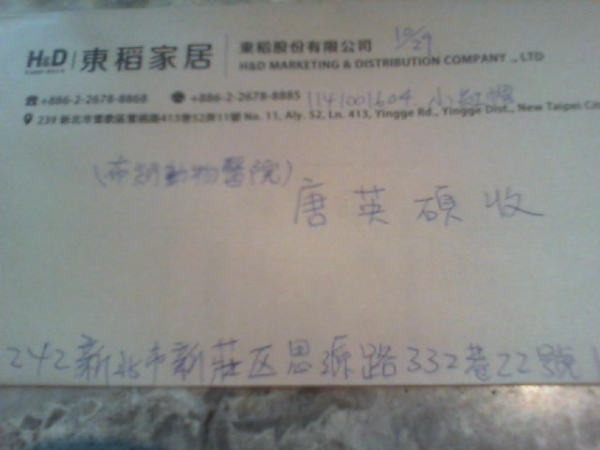 H&D 東稻家居 東稻股份有限公司 10/29
H&D MARKETING & DISTRIBUTION COMPANY ., LTD
+886-2-2678-8868 +886-2-2678-8885 1141001604 小紅帽
239 新北市鶯歌區鶯桃路413巷52弄11號 No. 11, Aly. 52, Ln. 413, Yingge Rd., Yingge Dist., New Taipei
(布朗動物醫院)
唐英碩 收
242新北市新莊区思源路332巷22號